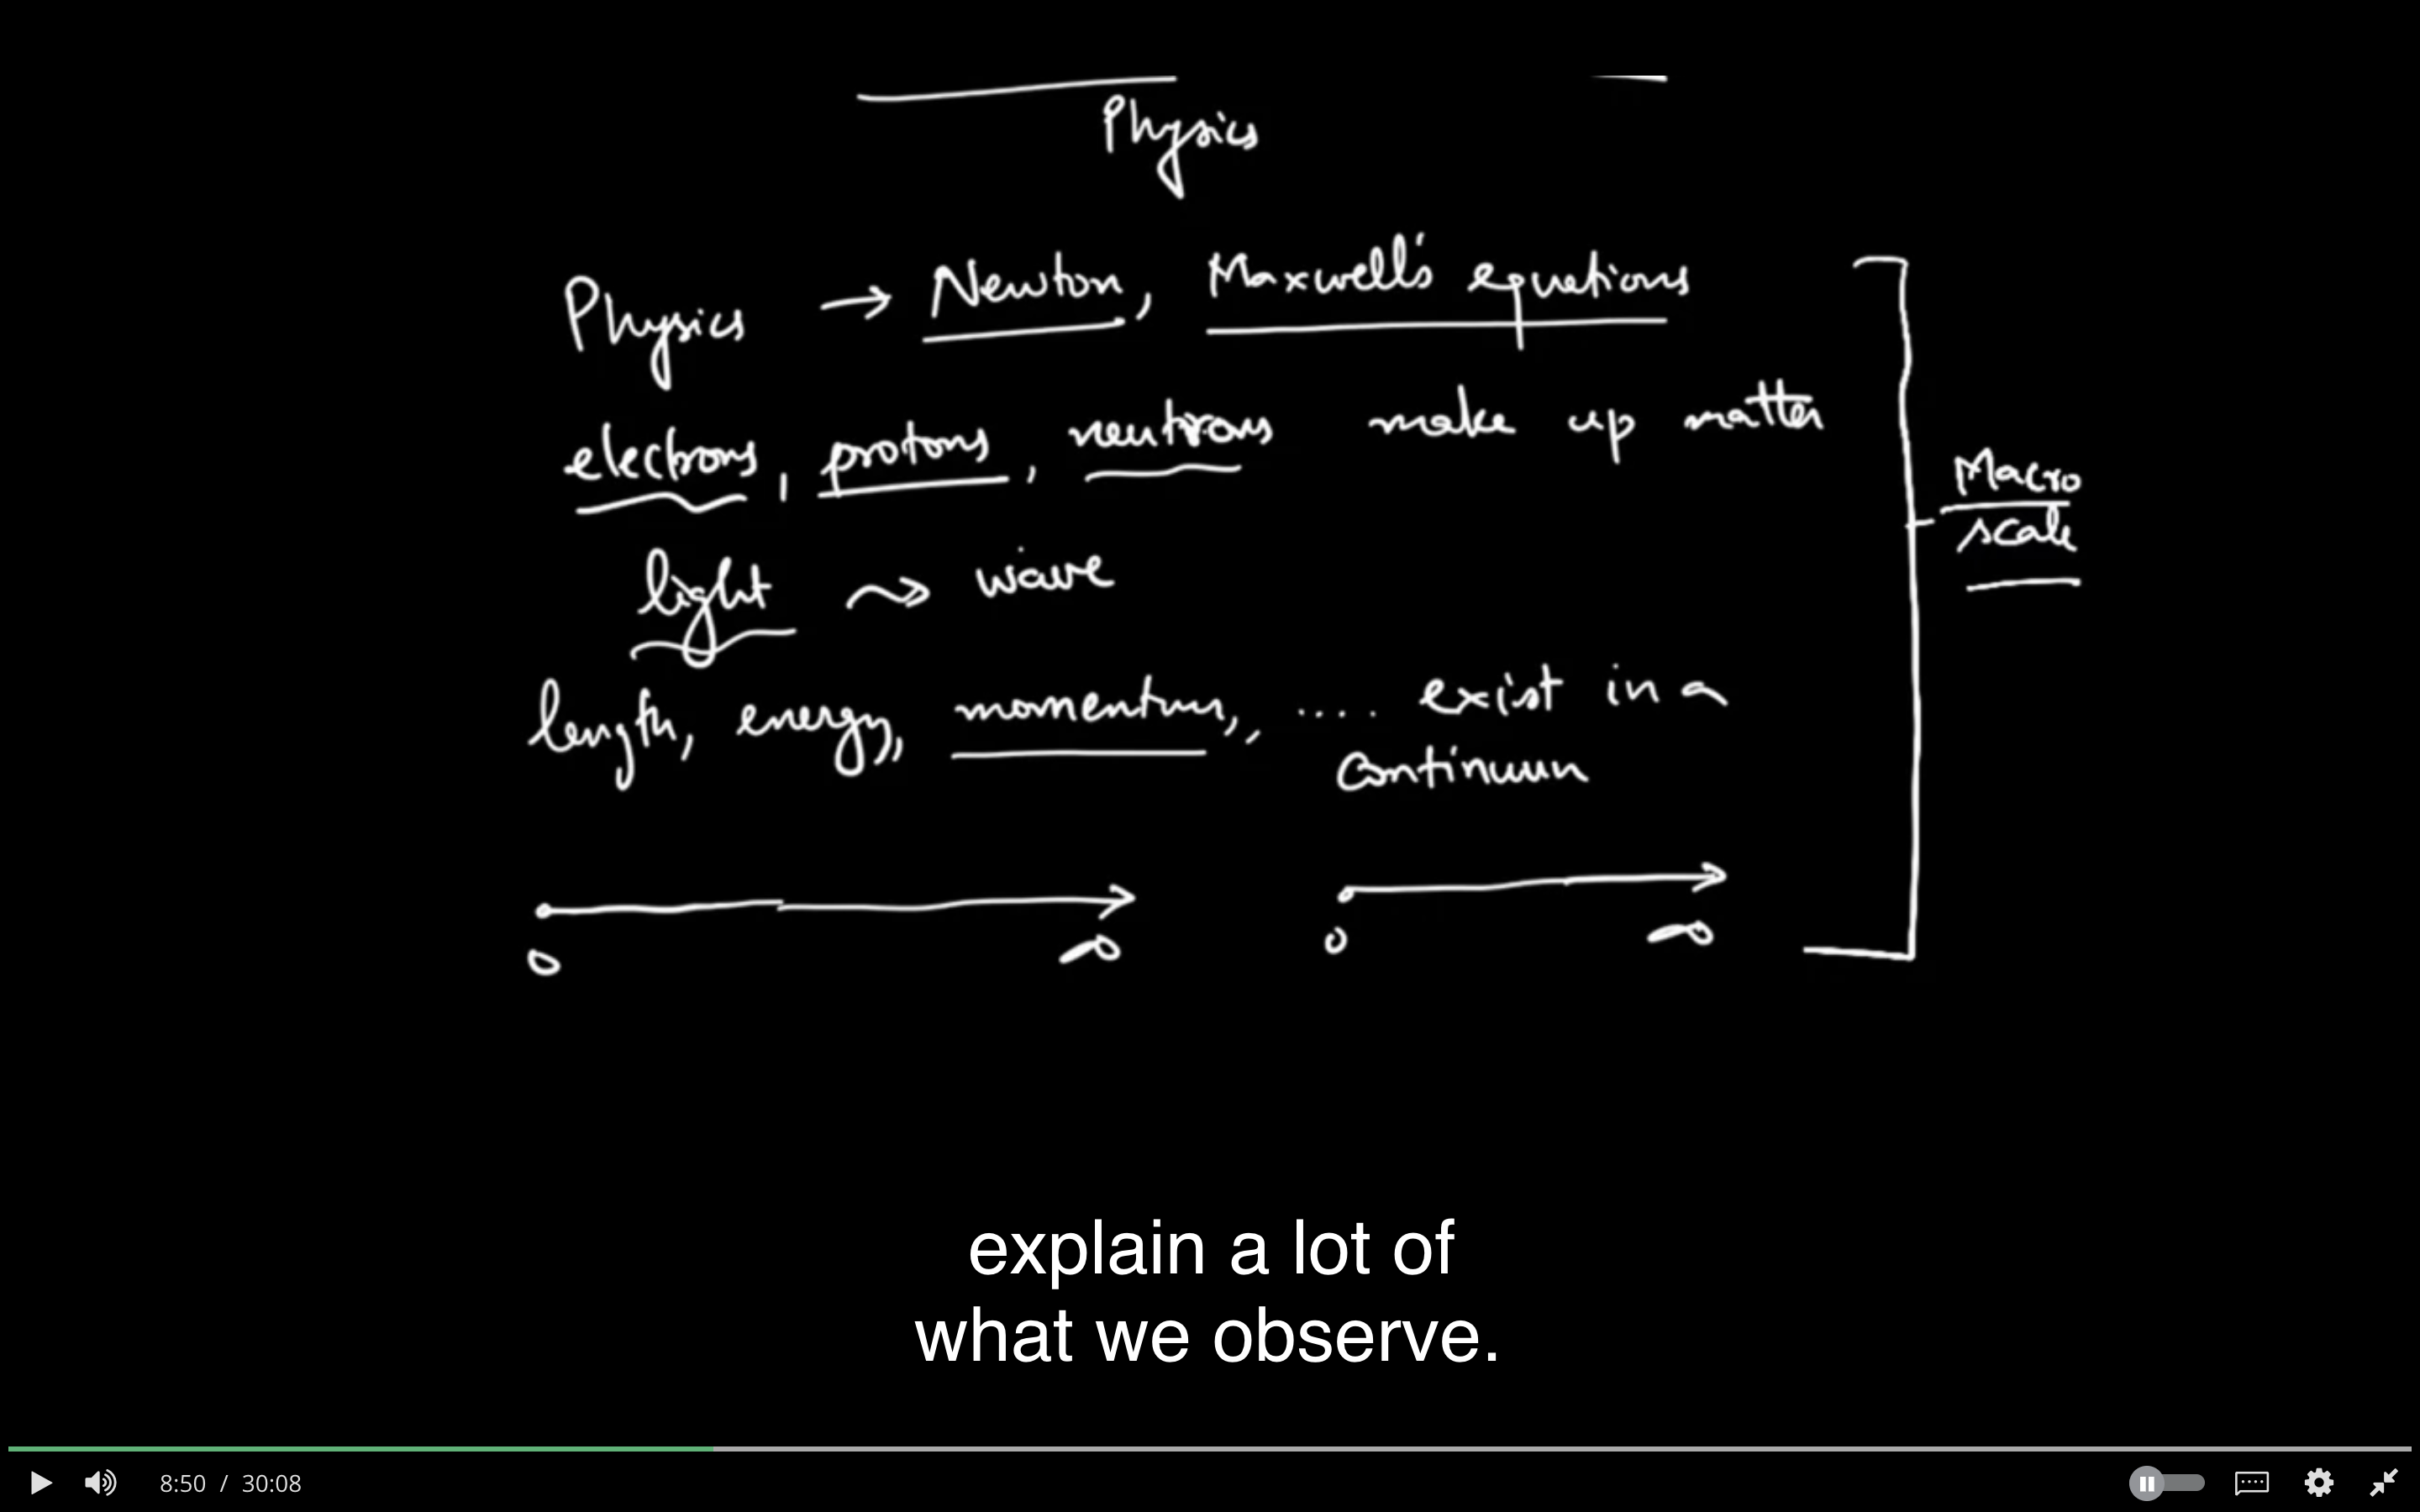 Physics
Physics → Newton, Maxwell's equations
electrons, protons, neutrons make up matter
Macro
scale
light ⇝ wave
length, energy, momentum, .... exist in a
continuum
0 ∞ 0 ∞
explain a lot of
what we observe.
8:50 / 30:08